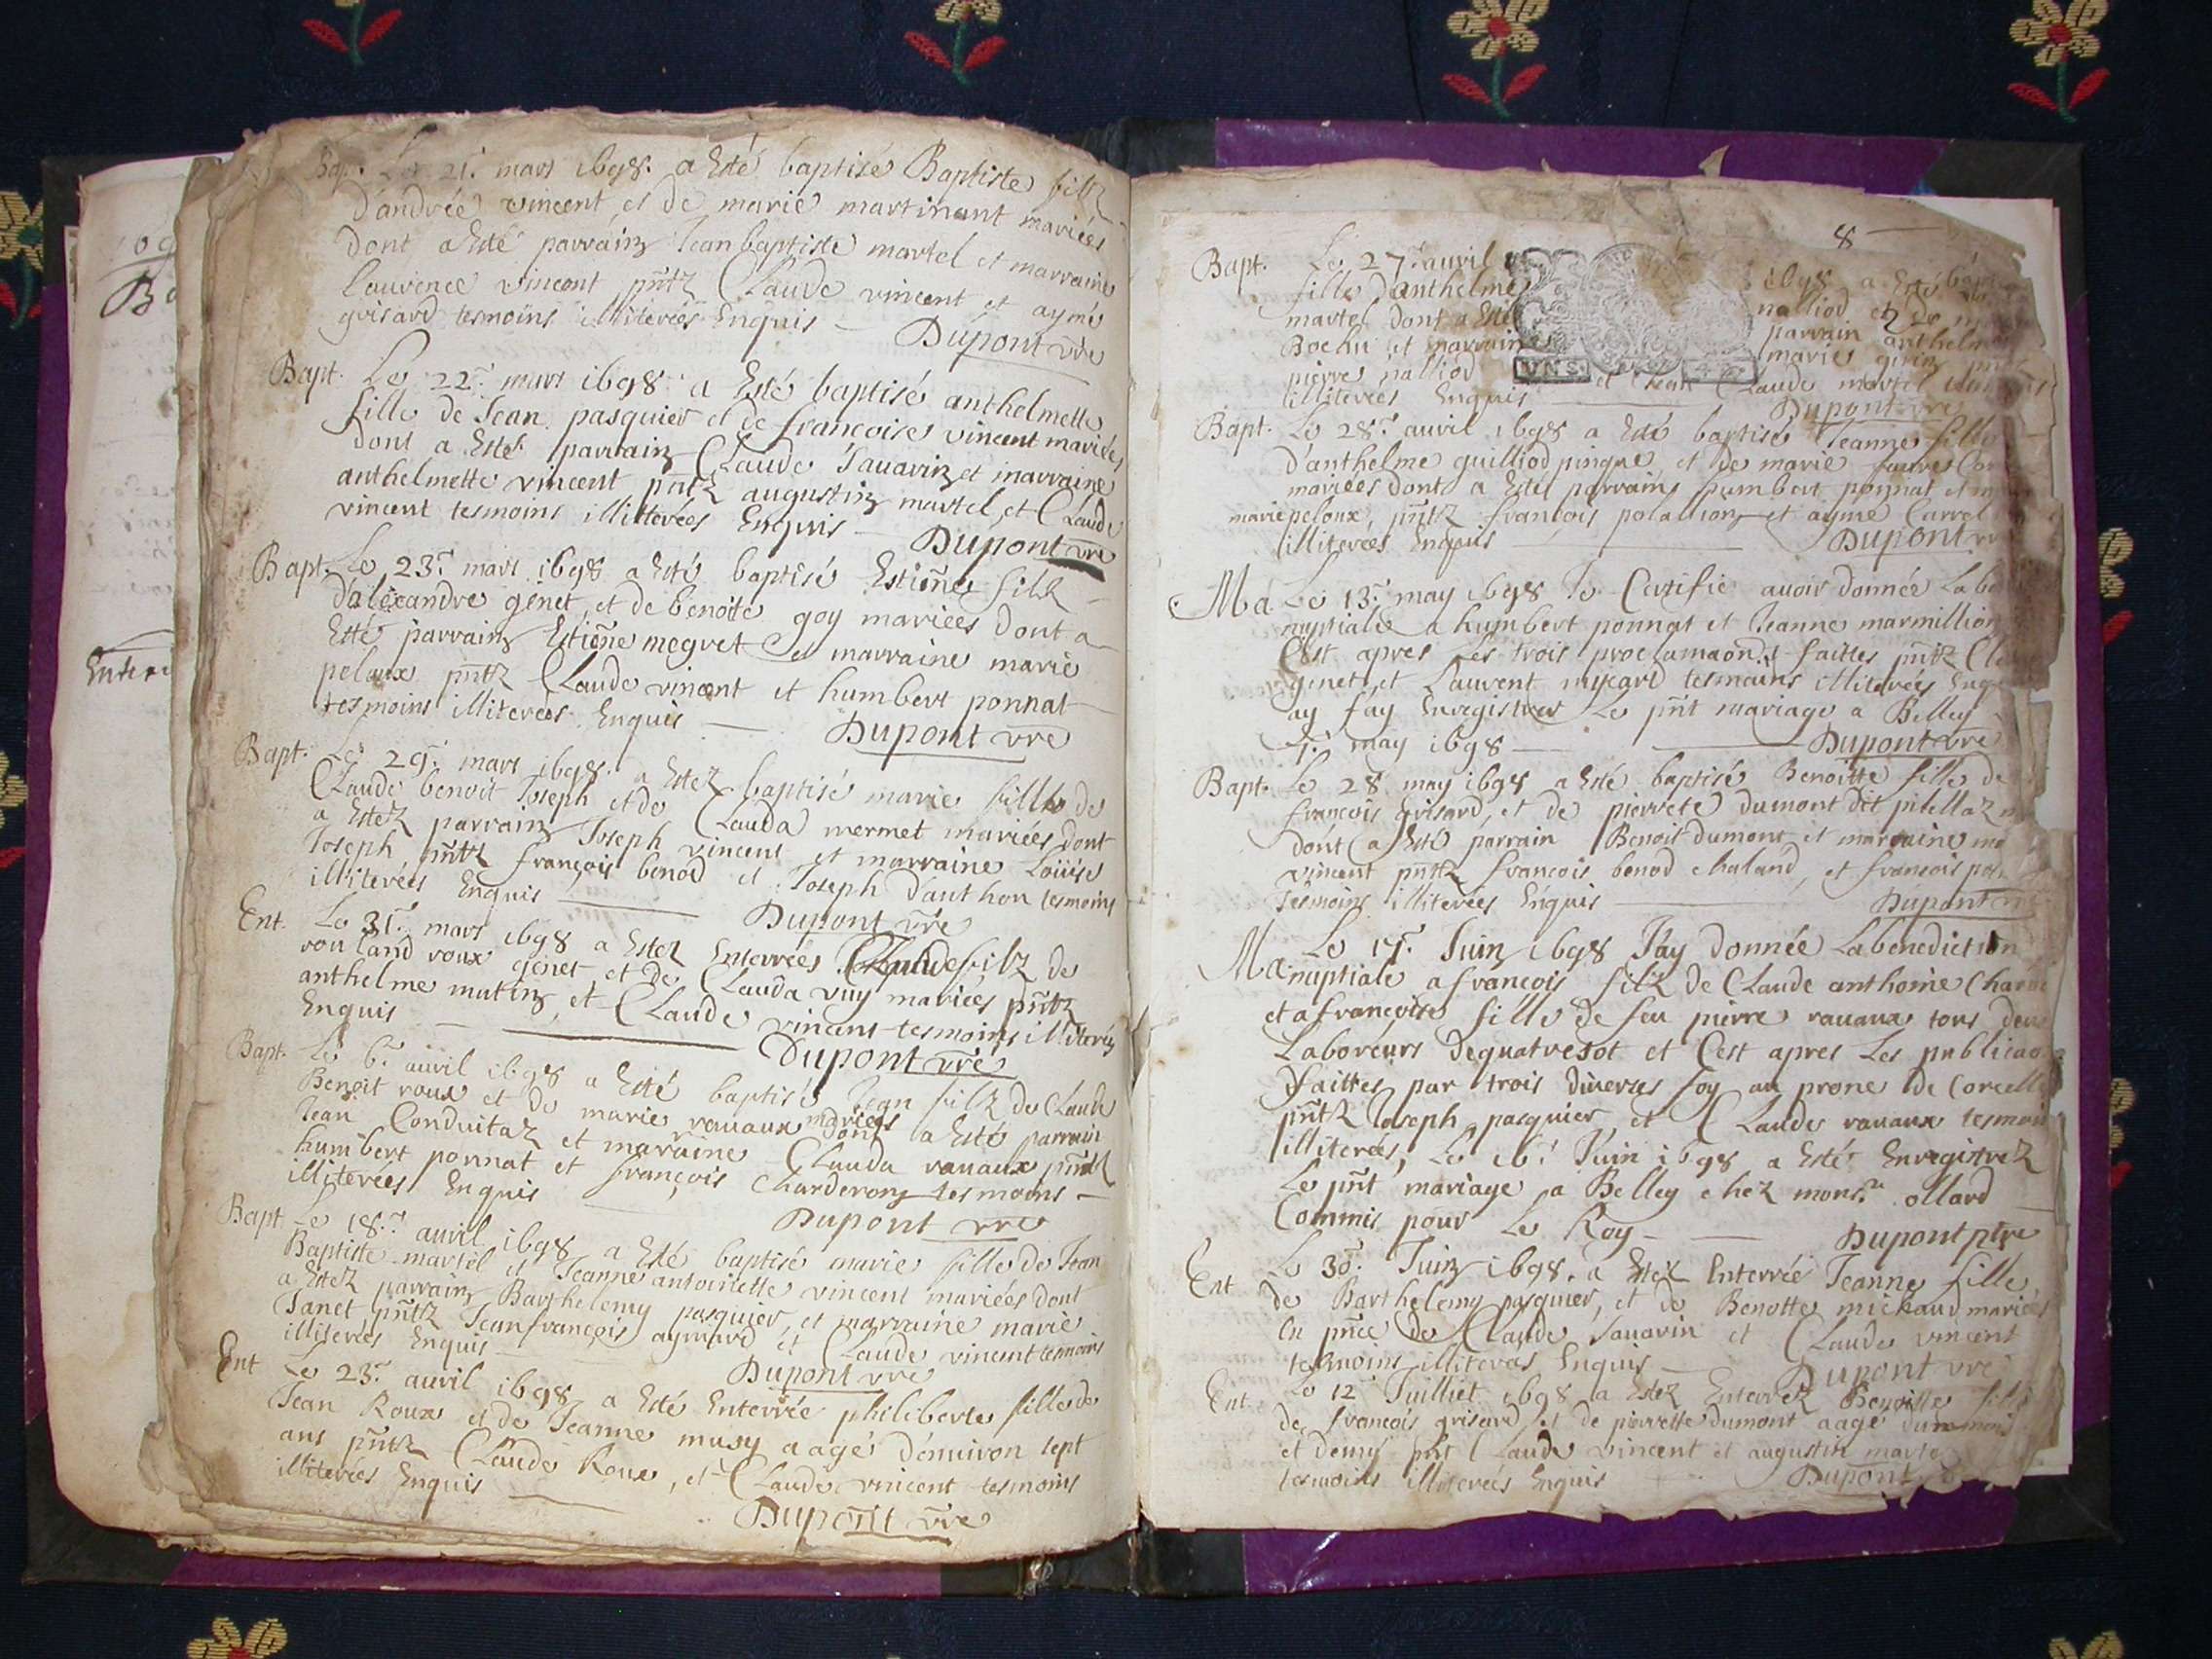 Bap. Le 21. mars 1698. a Esté baptisé Baptiste filz
d'andrée vincent et de marie martinant mariées
dont a Esté parrain Jean baptiste martel et marraine
laurence vincent pntz Claude vincent et aymé
grisard tesmoins illiterées Enquis Dupont vre
Bapt. Le 22. mars 1698 a Esté baptisé anthelmette
fille de Jean pasquier et de francoise vincent mariées
dont a Esté parrain Claude Sauarin et marraine
anthelmette vincent pntz augustin martel, et Claude
vincent tesmoins illitterées Enquis Dupont vre
Bapt. Le 23. mars 1698 a Esté baptisé Estiene filz
d'alexandre genet, et de benoite goy mariées dont a
Esté parrain Estiene megret et marraine marie
peloux pntz Claude vincent et humbert ponnat
tesmoins illiterées Enquis Dupont vre
Bapt. Le 29. mars 1698. a Estez baptisé marie fille de
Claude benoit Joseph et de Clauda mermet mariées dont
a Estez parrain Joseph vincent et marraine Loüise
Joseph pntz françois benod et Joseph dauthon tesmoins
illiterées Enquis Dupont vre
Ent. Le 31. mars 1698 a Estez Enterrées Claude filz de
rouland roux genet et de Clauda vuy mariées pntz
anthelme mutin, et Claude vincent tesmoins illiterées
Enquis Dupont vre
Bapt. Le 6. auril 1698 a Esté baptisé Jean filz de Claude
Benoit roux et de marie rauaux mariées dont a Esté parrain
Jean Conduitaz et maraine Clauda rauaux pntz
humbert ponnat et françois Charderon tesmoins
illiterées Enquis Dupont vre
Bapt Le 18. auril 1698 a Esté baptisé marie fille de Jean
Baptiste martel et Jeanne antoinette vincent mariées dont
a Estez parrain Barthelemy pasquier, et marraine marie
Janet pntz Jean françois aymard et Claude vincent tesmoins
illiterées Enquis Dupont vre
Ent Le 23. auril 1698 a Esté Enterrée philiberte fille de
Jean Roux et de Jeanne musy aagé d'enuiron sept
ans pntz Claude Roux, et Claude vincent tesmoins
illiterées Enquis
Dupont vre
8
Bapt. Le 27. auril 1698 a Esté
fille d'anthelme nalliod et de
martel dont a Esté parrain
Bochu et marraine marie
pierre nalliod et Jean Claude martel
illiterées Enquis Dupont vre
Bapt. Le 28. auril 1698 a Esté baptisé Jeanne fille
d'anthelme guilliod pingue, et de marie
mariées dont a Esté parrain humbert ponnat et
marie peloux, pntz françois polallion et aymé Carrel
illiterées Enquis Dupont
Ma Le 13. may 1698 Je Certifie auoir donnée La
nuptiale a humbert ponnat et Jeanne marmillion
C'est apres Les trois proclamaons faittes pntz
genet, et Laurent mycard tesmoins illiterées
ay fay Enregistrer Le pnt mariage a Belley
may 1698 Dupont vre
Bapt. Le 28 may 1698 a Esté baptisé Benoitte fille de
françois Grisard, et de pierrete dumont dit pitellaz
dont a Esté parrain Benoit dumont et marraine
vincent pntz francois benod chaland, et francois
Tesmoins illiterées Enquis Dupont
Ma Le 15. Juin 1698 J'ay donnée La benediction
nuptiale a françois filz de Claude anthoine
et a françoise fille de feu pierre rauaux tous
Laboreurs de quatresot et C'est apres Les
faittes par trois diuerses foy au prone de
pntz Joseph pasquier, et Claude rauaux
illiterées, Le 16. Juin 1698 a Esté Enregistrez
Le pnt mariage a Belley chez monsr ollard
Commis pour Le Roy Dupont ptre
Ent Le 30. Juin 1698. a Estez Enterrée Jeanne fille
de Barthelemy pasquier, et de Benotte michaud mariées
En pnce de Claude Sauarin et Claude vincent
tesmoins illiterées Enquis Dupont vre
Ent. Le 12 Juilliet 1698 a Estez Enterrez Benoitte
de francois grisard et de pierrette dumont aagé d'un mois
et demy pnt Claude vincent et augustin
tesmoins illiterées Enquis Dupont